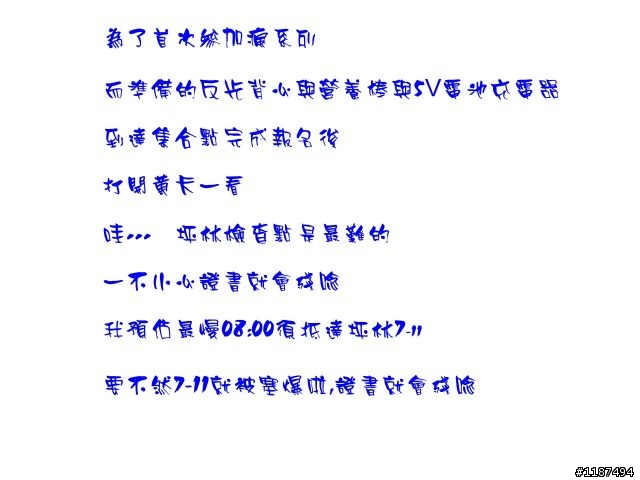 為了首次參加瘋系列
而準備的反光背心與營養棒與5V電池充電器
到達集合點完成報名後
打開黃卡一看
哇... 坪林檢查點是最難的
一不小心證書就會殘唸
我預估最慢08:00須抵達坪林7-11
要不然7-11就被塞爆啦,證書就會殘唸
#1187494